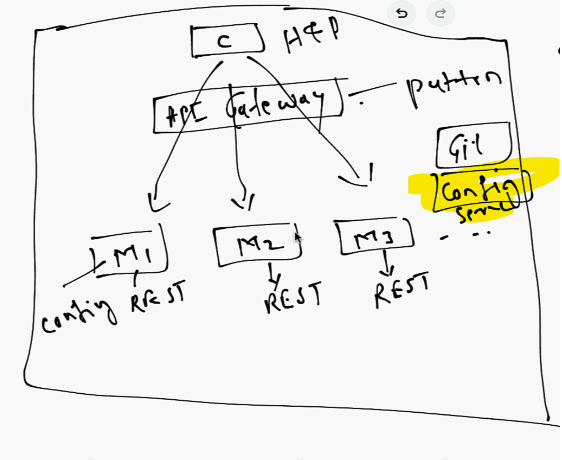 C
HTTP
API Gateway
pattern
Git
Config
Server
M1
M2
M3
config
REST
REST
REST